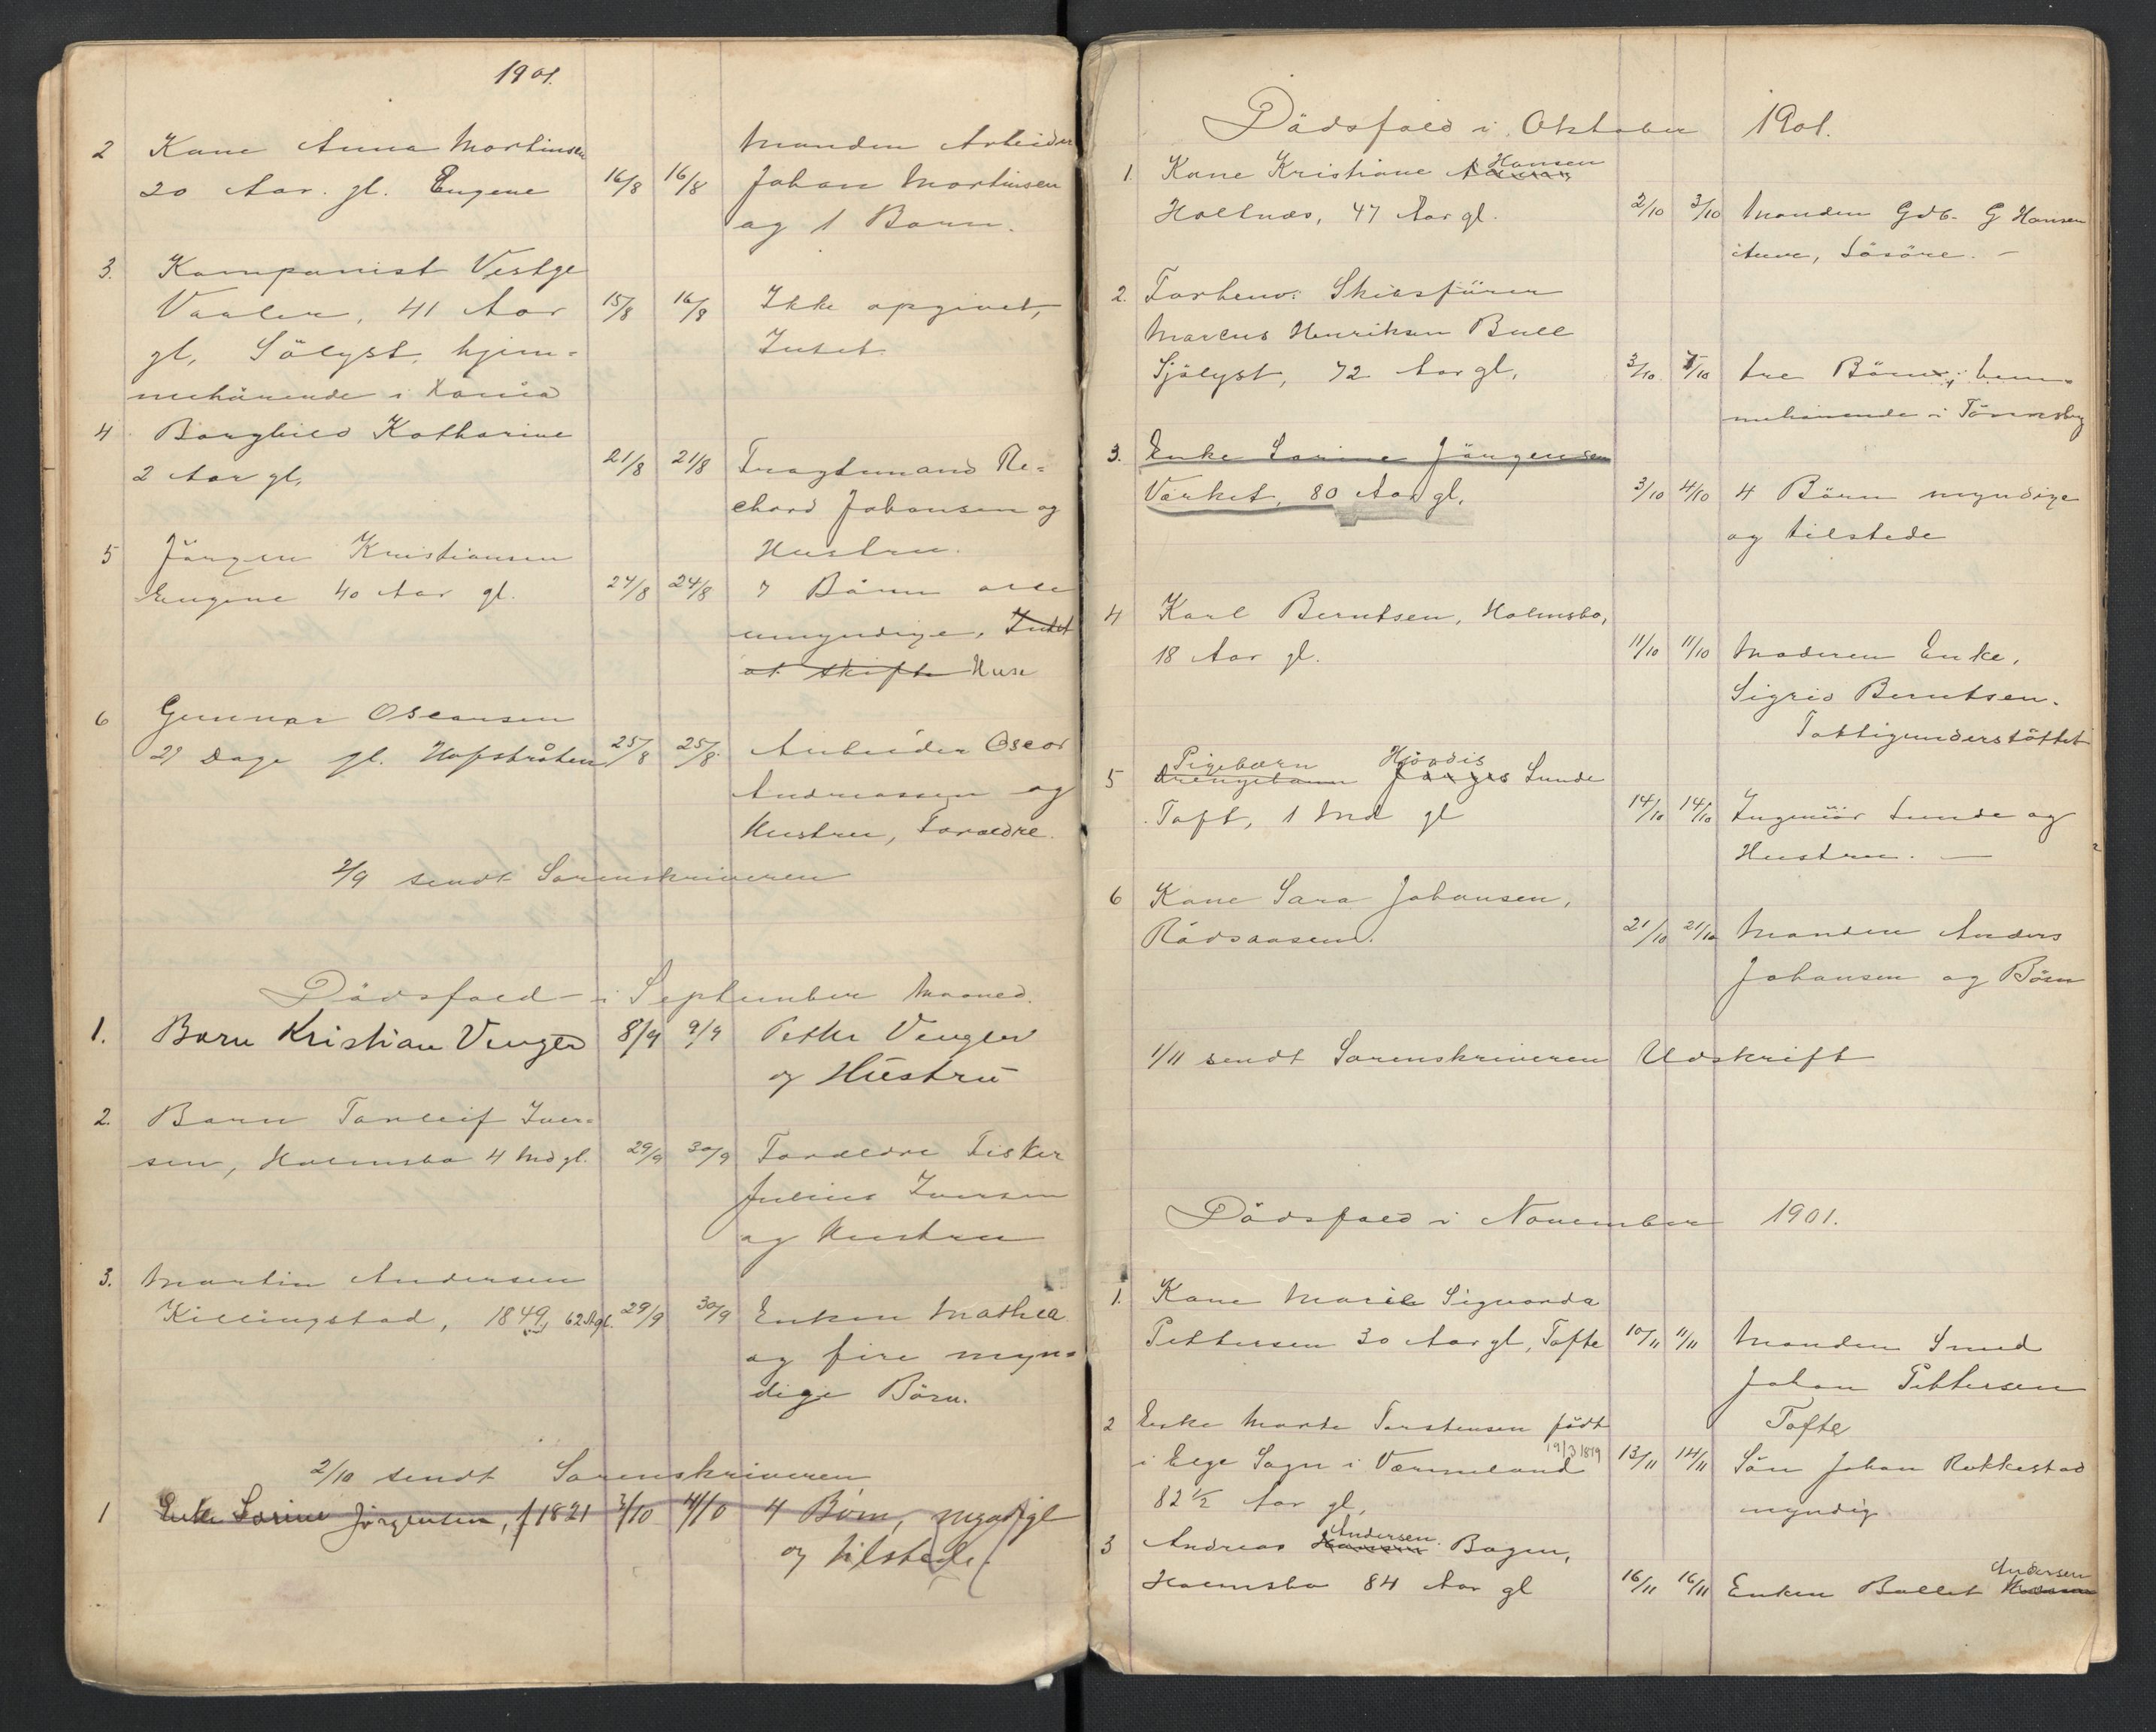 1901.
2 Kone Anna Mortinsen
20 Aar. gl. Engene 16/8 16/8
Manden Arbeider
Johan Mortinsen
og 1 Barn.
3. Kompanist Vestge
Vaaler, 41 Aar 15/8 16/8 Ikke opgivet,
gl, Sölyst, hjem= Intet
mehörende i Kania
4 Borghild Katharine
2 Aar gl, 21/8 21/8 Fragtemand Re=
chard Johansen og
Hustru.
5 Jörgen Kristiansen
Engene 40 Aar gl. 24/8 24/8 7 Börn alle
umyndige. Intet
at skifte Huse
6 Gunnar Oscarsen
29 Dage gl. Hofstråten 25/8 25/8 Arbeider Oscar
Andreassen og
Hustru, Foraeldre.
2/9 sendt Sorenskriveren
Dödsfald i September Maaned.
1. Barn Kristian Venger 8/9 9/9 Petter Vengler
og Hustru
2. Barn Torleif Iver=
sen, Holmsbo 4 Md gl. 29/9 30/9 Foraeldre Fisker
Julius Iversen
og Hustru
3. Martin Andersen
Killingstad, 1849, 62 A gl. 29/9 30/9 Enken Mathea
og fire myn=
dige Börn.
2/10 sendt Sorenskriveren
1 Enke Sorine Jørgensen, f 1821 3/10 4/10 4 Børn, myndige
og tilstede.
Dödsfald i Oktober 1901.
1. Kone Kristiane Hansen
Holtnæs, 47 Aar gl. 2/10 3/10 Manden Gdb. G Hansen
Arve, Lösöre. -
2. Forhenv: Skibsförer
Marcus Henriksen Bull
Sjölyst, 72 Aar gl, 3/10 5/10 tre Börn, hem=
mehörende i Tönnsberg
3. Enke Sorine Jörgensen
Værket, 80 Aar gl. 3/10 4/10 4 Börn myndige
og tilstede
4 Karl Berntsen, Holmsbo,
18 Aar gl. 11/10 11/10 Moderen Enke,
Sigrid Berntsen.
Fattigunderstöttet
Pigebarn Hjördis
5 Drengebarn Jörges Lunde
Toft, 1 Md gl 14/10 14/10 Ingeniör Lunde og
Hustru. -
6 Kone Sara Johansen,
Rödsaasen. 21/10 21/10 Manden Anders
Johansen og Börn
1/11 sendt Sorenskriveren Udskrift
Dödsfald i November 1901.
1. Kone Marie Sigvarda
Pettersen 30 Aar gl, Tofte 10/11 11/11 Manden Smed
Johan Pettersen
Tofte
2 Enke Marte Torstensen födt
19/3 1819
i Elge Sogn i Værmeland 13/11 14/11 Sön Johan Rokkestad
82 1/2 Aar gl, myndig
Andersen
3 Andreas Hansen Bogen,
Holmsbo 84 Aar gl 16/11 16/11 Enken Bollet Andersen